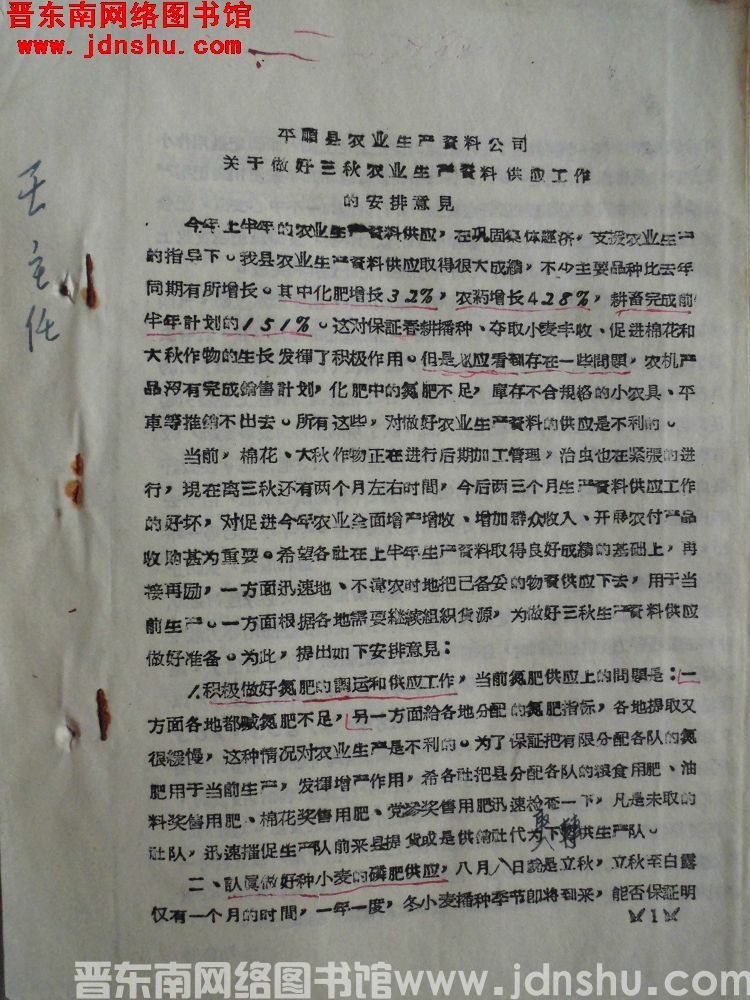 晋东南网络图书馆
www.jdnshu.com
王主任
平顺县农业生产資料公司
关于做好三秋农业生产資料供应工作
的安排意見
今年上半年的农业生产資料供应，在巩固集体經济，支援农业生产
的指导下。我县农业生产資料供应取得很大成績，不少主要品种比去年
同期有所增长。其中化肥增长32%，农葯增长428%，耕畜完成前
半年計划的151%。这对保証春耕播种、夺取小麦丰收、促进棉花和
大秋作物的生长发揮了积极作用。但是也应看到存在一些問題，农机产
品沒有完成銷售計划，化肥中的氮肥不足，庫存不合規格的小农具、平
車等推銷不出去。所有这些，对做好农业生产資料的供应是不利的。
当前，棉花、大秋作物正在进行后期加工管理，治虫也在緊張的进
行，現在离三秋还有两个月左右时間，今后两三个月生产資料供应工作
的好坏，对促进今年农业全面增产增收、增加群众收入、开展农付产品
收购甚为重要。希望各社在上半年生产資料取得良好成績的基础上，再
接再励，一方面迅速地、不漂农时地把已备妥的物資供应下去，用于当
前生产。一方面根据各地需要継續組织貨源，为做好三秋生产資料供应
做好准备。为此，提出如下安排意見：
1.积极做好氮肥的調运和供应工作，当前氮肥供应上的問題是：一
方面各地都喊氮肥不足，另一方面給各地分配的氮肥指标，各地提取又
很緩慢，这种情况对农业生产是不利的。为了保証把有限分配各队的氮
肥用于当前生产，发揮增产作用，希各社把县分配各队的粮食用肥、油
料奖售用肥、棉花奖售用肥、党参奖售用肥迅速检查一下，凡是未取的
社队，迅速摧促生产队前来县提貨或是供銷社代为下供生产队。
二、訊眞做好种小麦的磷肥供应，八月八日就是立秋，立秋至白露
仅有一个月的时間，一年一度，冬小麦播种季节即将到来，能否保証明
1
晋东南网络图书馆www.jdnshu.com